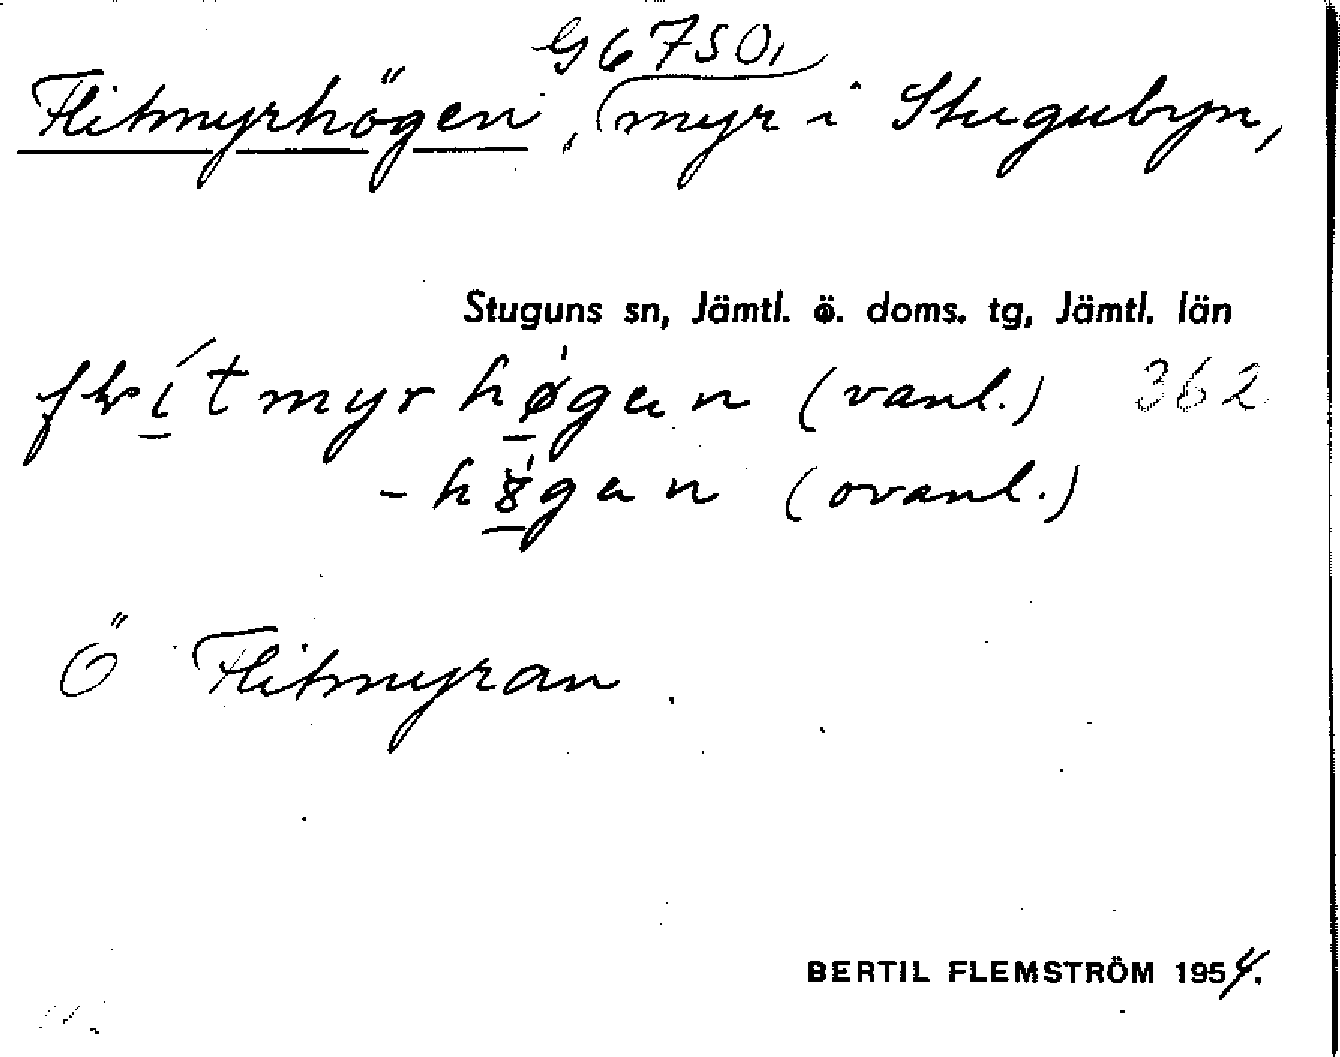 G 6750,
Flitmyrhögen, myr i Stugubyn,
Stuguns sn, Jämtl. ö. doms. tg, Jämtl. län
(vanl.) 362
(ovanl.)
Ö Flitmyran.
BERTIL FLEMSTRÖM 1954.